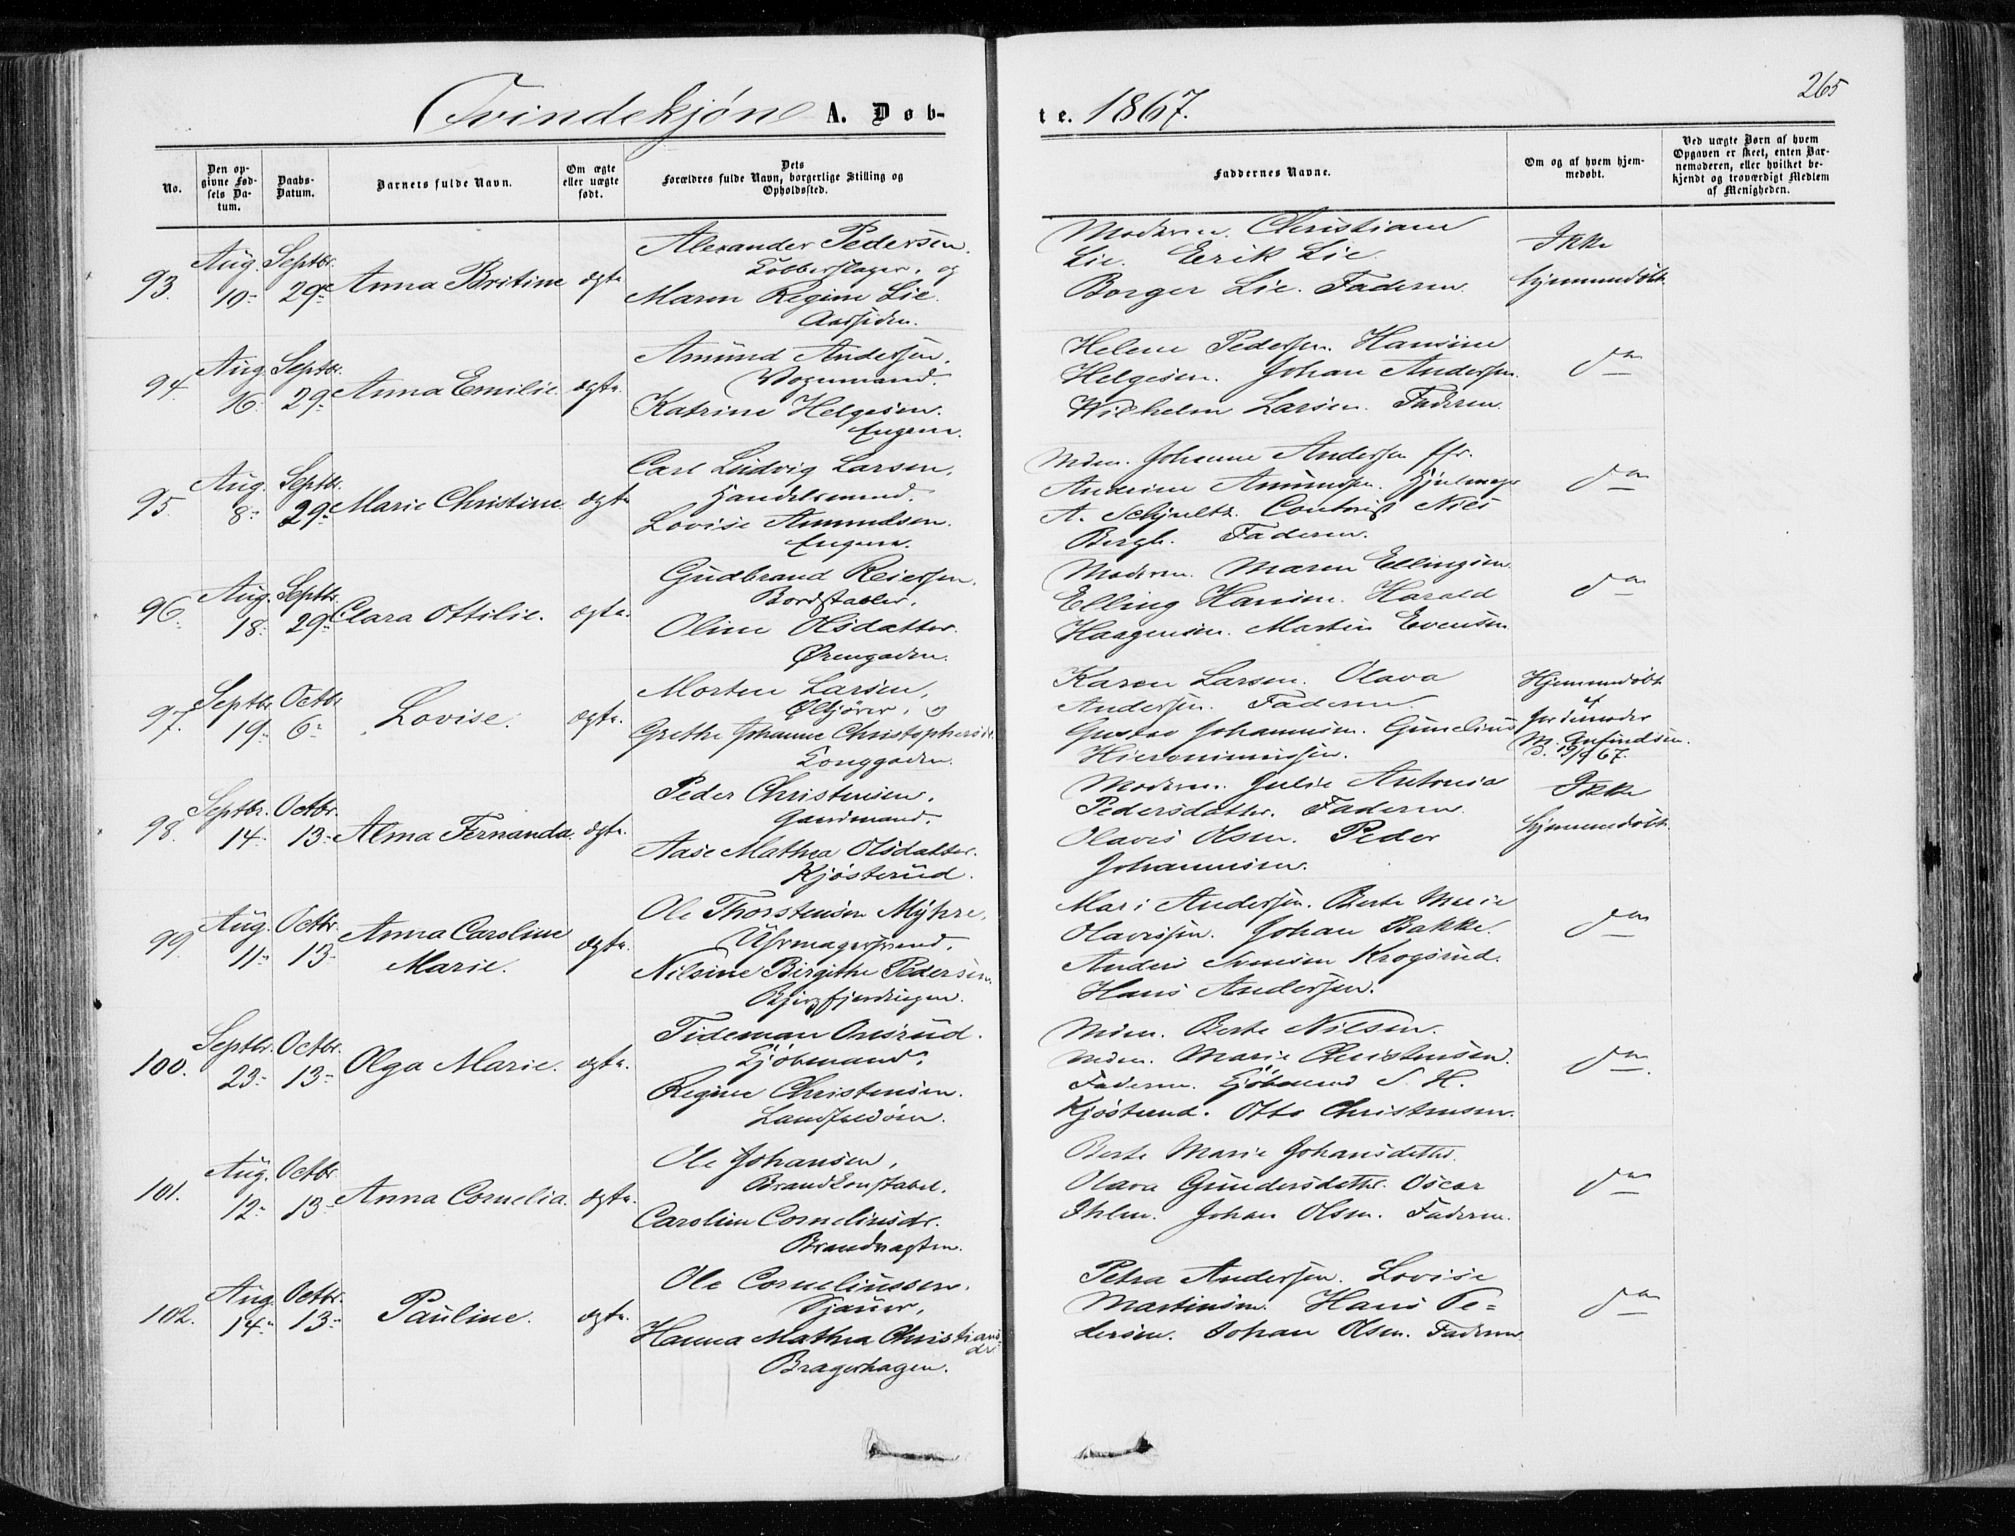 Qvindekjøn A. Døb-
te. 1867.
265
No.
Den opgivne Fødsels Datum.
Daabs-Datum.
Barnets fulde Navn.
Om ægte eller uægte født.
Dets Forældres fulde Navn, borgerlige Stilling og Opholdssted.
Faddernes Navne.
Om og af hvem hjemmedøbt.
Ved uægte Børn af hvem Opgaven er skeet, enten Barnemoderen, eller hvilket bekjendt og troværdigt Medlem af Menigheden.
93. Aug. 10 Septbr. 29 Anna Britine ægte
Alexander Pedersen.
Kobberslager, og
Maren Regine Lie.
Aassiden.
Moderen. Christiane
Lie. Erik Lie.
Borger Lie. Faderen.
Ikke
hjemmedøbt.
94. Aug. 16. Septbr. 29 Anna Emilie. ægte.
Amund Andersen.
Vognmand.
Katrine Helgesen.
Engene.
Helene Pedersen. Hansine
Helgesen. Johan Andersen.
Wilhelm Larsen. Faderen.
do
95. Aug. 8 Septbr. 29 Marie Christine. ægte
Carl Ludvig Larsen.
Handelsmand.
Lovise Amundsen.
Engene.
Mdm. Johanne Andersen ffr.
Andrine Amundsen. Hjulmager
A. Schjults. Nils
Bergh. Faderen.
do
96. Aug. 18 Septbr. 29 Clara Ottilie. ægte.
Gudbrand Reiersen.
Bordstabler.
Oline Olsdatter.
Ørengaden.
Moderen. Maren Ellingsen
Elling Hansen. Harald
Haagensen. Martin Evensen
do
97. Septbr. 19 Octbr. 6 Lovise. ægte.
Morten Larsen,
Ølkjører, og
Grethe Johanne Christophersdr.
Konggaden.
Karen Larsen. Olava
Andersen. Faderen.
Gustav Johannesen. Gunelius
Hieronimussen.
Hjemmedøbt
af
Jordemoder
M. Anfindsen.
d. 19/9 67.
98. Septbr. 14 Octbr. 13 Alma Fernanda. ægte.
Peder Christensen.
Gaardmand.
Aase Mathea Olsdatter.
Kjøsterud.
Moderen. Julie Antonia
Pedersdatter. Faderen.
Olavus Olsen. Peder
Johannesen.
Ikke
hjemmedøbt.
99. Aug. 11 Octbr. 13 Anna Caroline
Marie. ægte.
Ole Thorstensen Myhre,
Uhrmagersvend.
Nilsine Birgithe Pedersen.
Bjergfjerdingen.
Mari Andersen. Berte Marie
Olavesen. Johan Bakke.
Anders Svensen Krogsrud.
Hans Andersen.
do
100. Septbr. 23 Octbr. 13 Olga Marie. ægte.
Tideman Onsrud.
Kjøbmand.
Regine Christensen.
Landfaldøen.
Mdm. Berte Nilsen.
Mdm. Marie Christensen.
Faderen. Kjøbmand S. H.
Kjøsterud. Otto Christensen.
do
101. Aug. 12 Octbr. 13 Anna Cornelia. ægte.
Ole Johansen,
Brandkonstabel.
Caroline Corneliusdr.
Brandvagten.
Berte Marie Johansdatter.
Olava Gundersdatter. Oscar
Ihlen. Johan Olsen. Faderen.
do
102. Aug. 14 Octbr. 13 Pauline. ægte.
Ole Corneliussen.
Sjauer,
Hanna Mathea Christians
dr.
Bragerhagen.
Petra Andersen. Lovise
Martinsen. Hans Pe=
dersen. Johan Olsen. Faderen
do